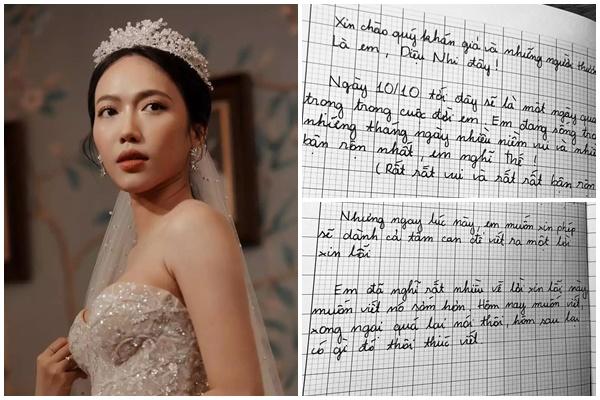 Xin chào quý khán giả và những người thươ
Là em, Diệu Nhi đây!
Ngày 10/10 tới đây sẽ là một ngày qua
trong trong cuộc đời em. Em đang sống tro
những tháng ngày nhiều niềm vui và nhiề
bận rộn nhất, em nghĩ thế!
(Rất rất vui và rất rất bận rộn
Nhưng ngay lúc này, em muốn xin phép
sẽ dành cả tâm can để viết ra một lời
xin lỗi
Em đã nghĩ rất nhiều về lời xin lỗi này
muốn viết nó sớm hơn. Hôm nay muốn viết
xong ngại quá lại nói thôi, hôm sau lại
có gì đó thôi thúc viết.